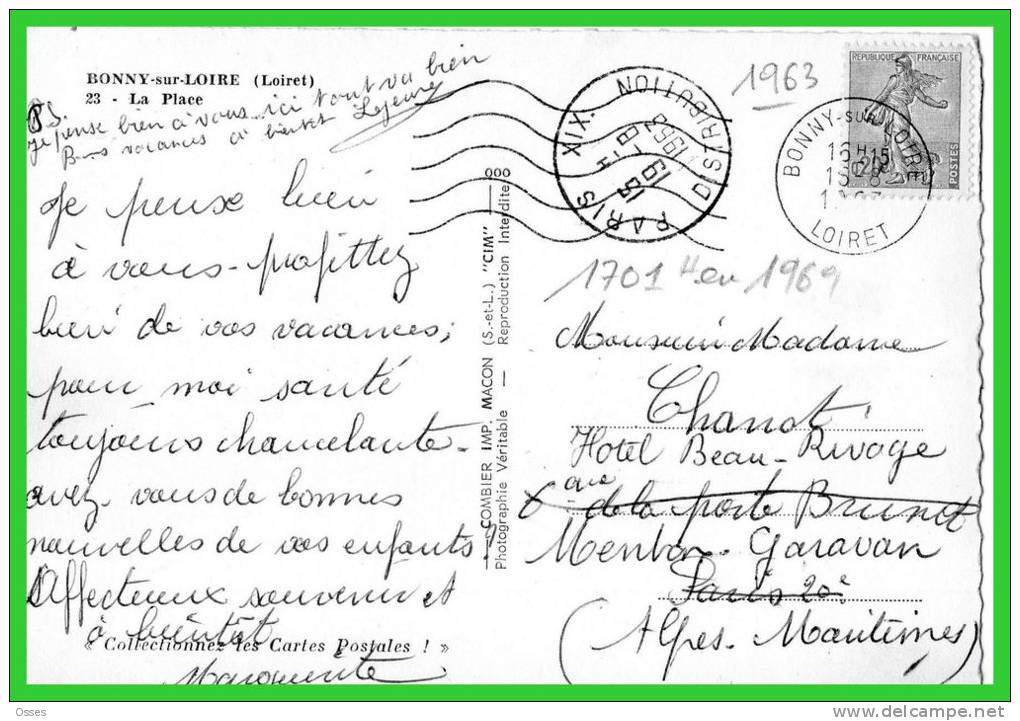 BONNY-sur-LOIRE (Loiret)
23 - La Place
PS.
je pense bien à vous. ici tout va bien
Bons vacances à bientot Lejeune
Je pense bien
à vous - profittez
bien de vos vacances,
pour moi santé
toujours chancelante -
avez-vous de bonnes
nouvelles de vos enfants?
Affectueux souvenir et
à bientôt
« Collectionnez les Cartes Postales ! »
Marguerite
COMBIER IMP. MACON (S.-et-L.) "CIM" ooo
Photographie Véritable — Reproduction Interdite
PARIS XIX DISTRIBUTION
1963
RÉPUBLIQUE FRANÇAISE
POSTES
BONNY-SUR-LOIRE
16H15
LOIRET
1701 H en 1969
Monsieur Madame
Chanot
Hotel Beau-Rivage
de la porte Brunet
Menton-Garavan
Paris 20e
(Alpes-Maritimes)
Osses
delcampe.net